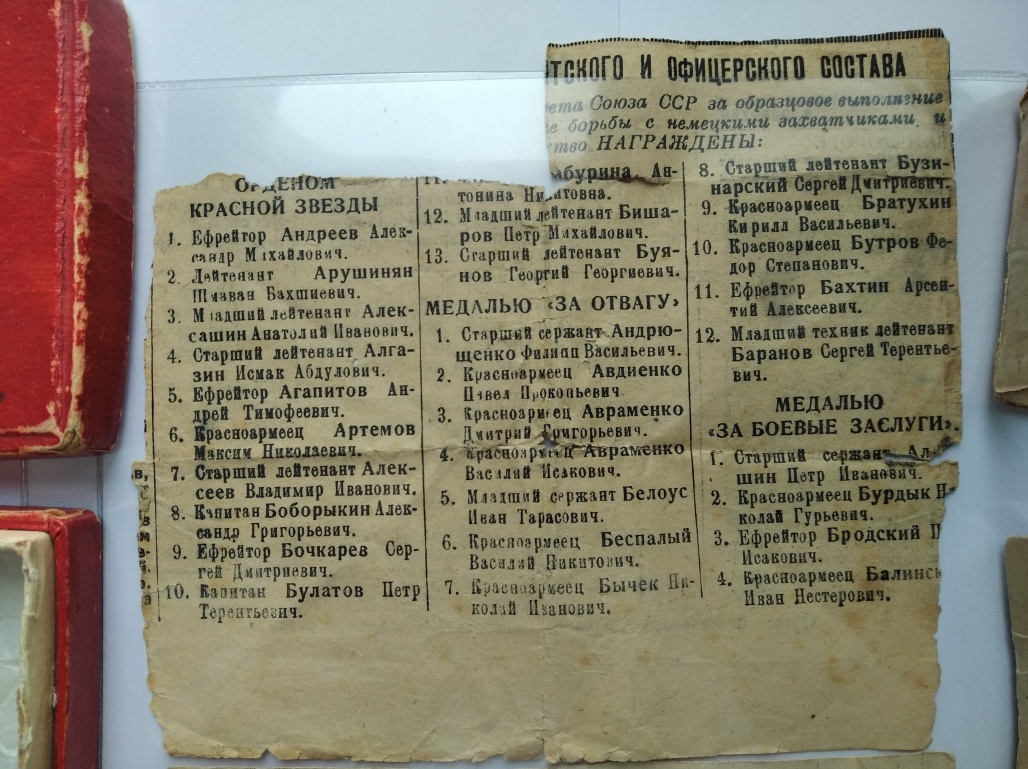 ТСКОГО И ОФИЦЕРСКОГО СОСТАВА
вета Союза ССР за образцовое выполнение
борьбы с немецкими захватчиками и
ство НАГРАЖДЕНЫ:
ОРДЕНОМ
КРАСНОЙ ЗВЕЗДЫ
1. Ефрейтор Андреев Алек-
сандр Михайлович.
2. Лейтенант Арушинян
Бахшиевич.
3. Младший лейтенант Алек-
сашин Анатолий Иванович.
4. Старший лейтенант Алга-
зин Исмак Абдулович.
5. Ефрейтор Агапитов Ан-
дрей Тимофеевич.
6. Красноармеец Артемов
Максим Николаевич.
7. Старший лейтенант Алек-
сеев Владимир Иванович.
8. Капитан Боборыкин Алек-
сандр Григорьевич.
9. Ефрейтор Бочкарев Сер-
гей Дмитриевич.
10. Капитан Булатов Петр
Терентьевич.
абурина Ан-
тонина Никитовна.
12. Младший лейтенант Биша-
ров Петр Михайлович.
13. Старший лейтенант Буя-
нов Георгий Георгиевич.
МЕДАЛЬЮ «ЗА ОТВАГУ»
1. Старший сержант Андрю-
щенко Филипп Васильевич.
2. Красноармеец Авдиенко
Павел Прокопьевич
3. Красноармеец Авраменко
Дмитрий Григорьевич.
4. Красноармеец Авраменко
Василий Исакович.
5. Младший сержант Белоус
Иван Тарасович.
6. Красноармеец Беспалый
Василий Никитович.
7. Красноармеец Бычек Ни-
колай Иванович.
8. Старший лейтенант Бузи-
нарский Сергей Дмитриевич.
9. Красноармеец Братухин
Кирилл Васильевич.
10. Красноармеец Бутров Фе-
дор Степанович.
11. Ефрейтор Бахтин Арсен-
тий Алексеевич.
12. Младший техник лейтенант
Баранов Сергей Терентье-
вич.
МЕДАЛЬЮ
«ЗА БОЕВЫЕ ЗАСЛУГИ».
1. Старший сержант
шин Петр Иванович.
2. Красноармеец Бурдык Н
колай Гурьевич.
3. Ефрейтор Бродский
Исакович.
4. Красноармеец Балинск
Иван Нестерович.